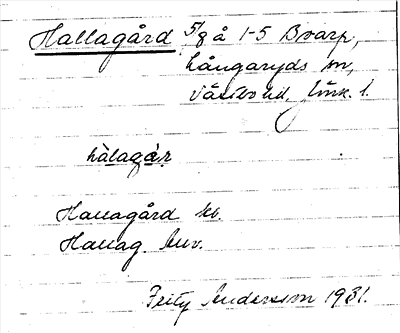 Hallagård 5/8 å 1-5 Boarp,
Långaryds sn,
Västbo hd, Jönk. l.
hàlagár
Hallagård kb.
Hallag.
Fritz Andersson 1931.